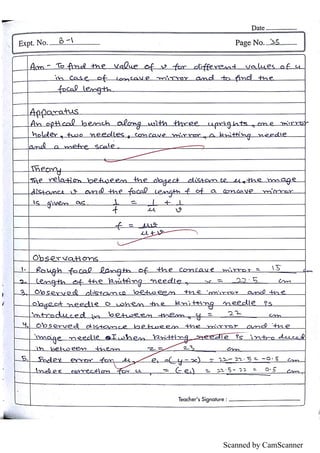 Date
Expt. No. B-1
Page No. 35
Aim - To find the value of v for different values of u
in case of concave mirror and to find the
focal length.
Apparatus
An optical bench along with three uprights, one mirror
holder, two needles, concave mirror, a knitting needle
and a metre scale.
Theory
The relation between the object distance u, the image
distance v and the focal length f of a concave mirror
is given as. 1/f = 1/u + 1/v
f = uv/u+v
Observations
1. Rough focal length of the concave mirror = 15 cm
2. Length of the knitting needle, x = 22.5 cm
3. Observed distance between the mirror and the
object needle O when the knitting needle is
introduced in between them, y = 22 cm
4. Observed distance between the mirror and the
image needle I when knitting needle is introduced
in between them z = 23 cm
5. Index error for u, e₁ = (y-x) = 22-22.5 = -0.5 cm
Index correction for u, = (-e₁) = 22.5-22 = 0.5 cm
Teacher's Signature :
Scanned by CamScanner